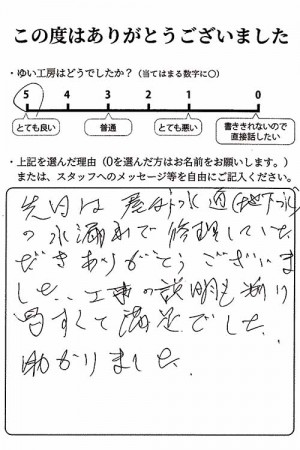 この度はありがとうございました
・ゆい工房はどうでしたか？（当てはまる数字に○）
5 4 3 2 1 0
とても良い 普通 とても悪い 書ききれないので直接話したい
・上記を選んだ理由（0を選んだ方はお名前をお願いします。）
または、スタッフへのメッセージ等を自由にご記入ください。
先日は屋外水道（地下水）
の水漏れで修理していた
だきありがとうございま
した、工事の説明も解り
易すくて満足でした
助かりました.